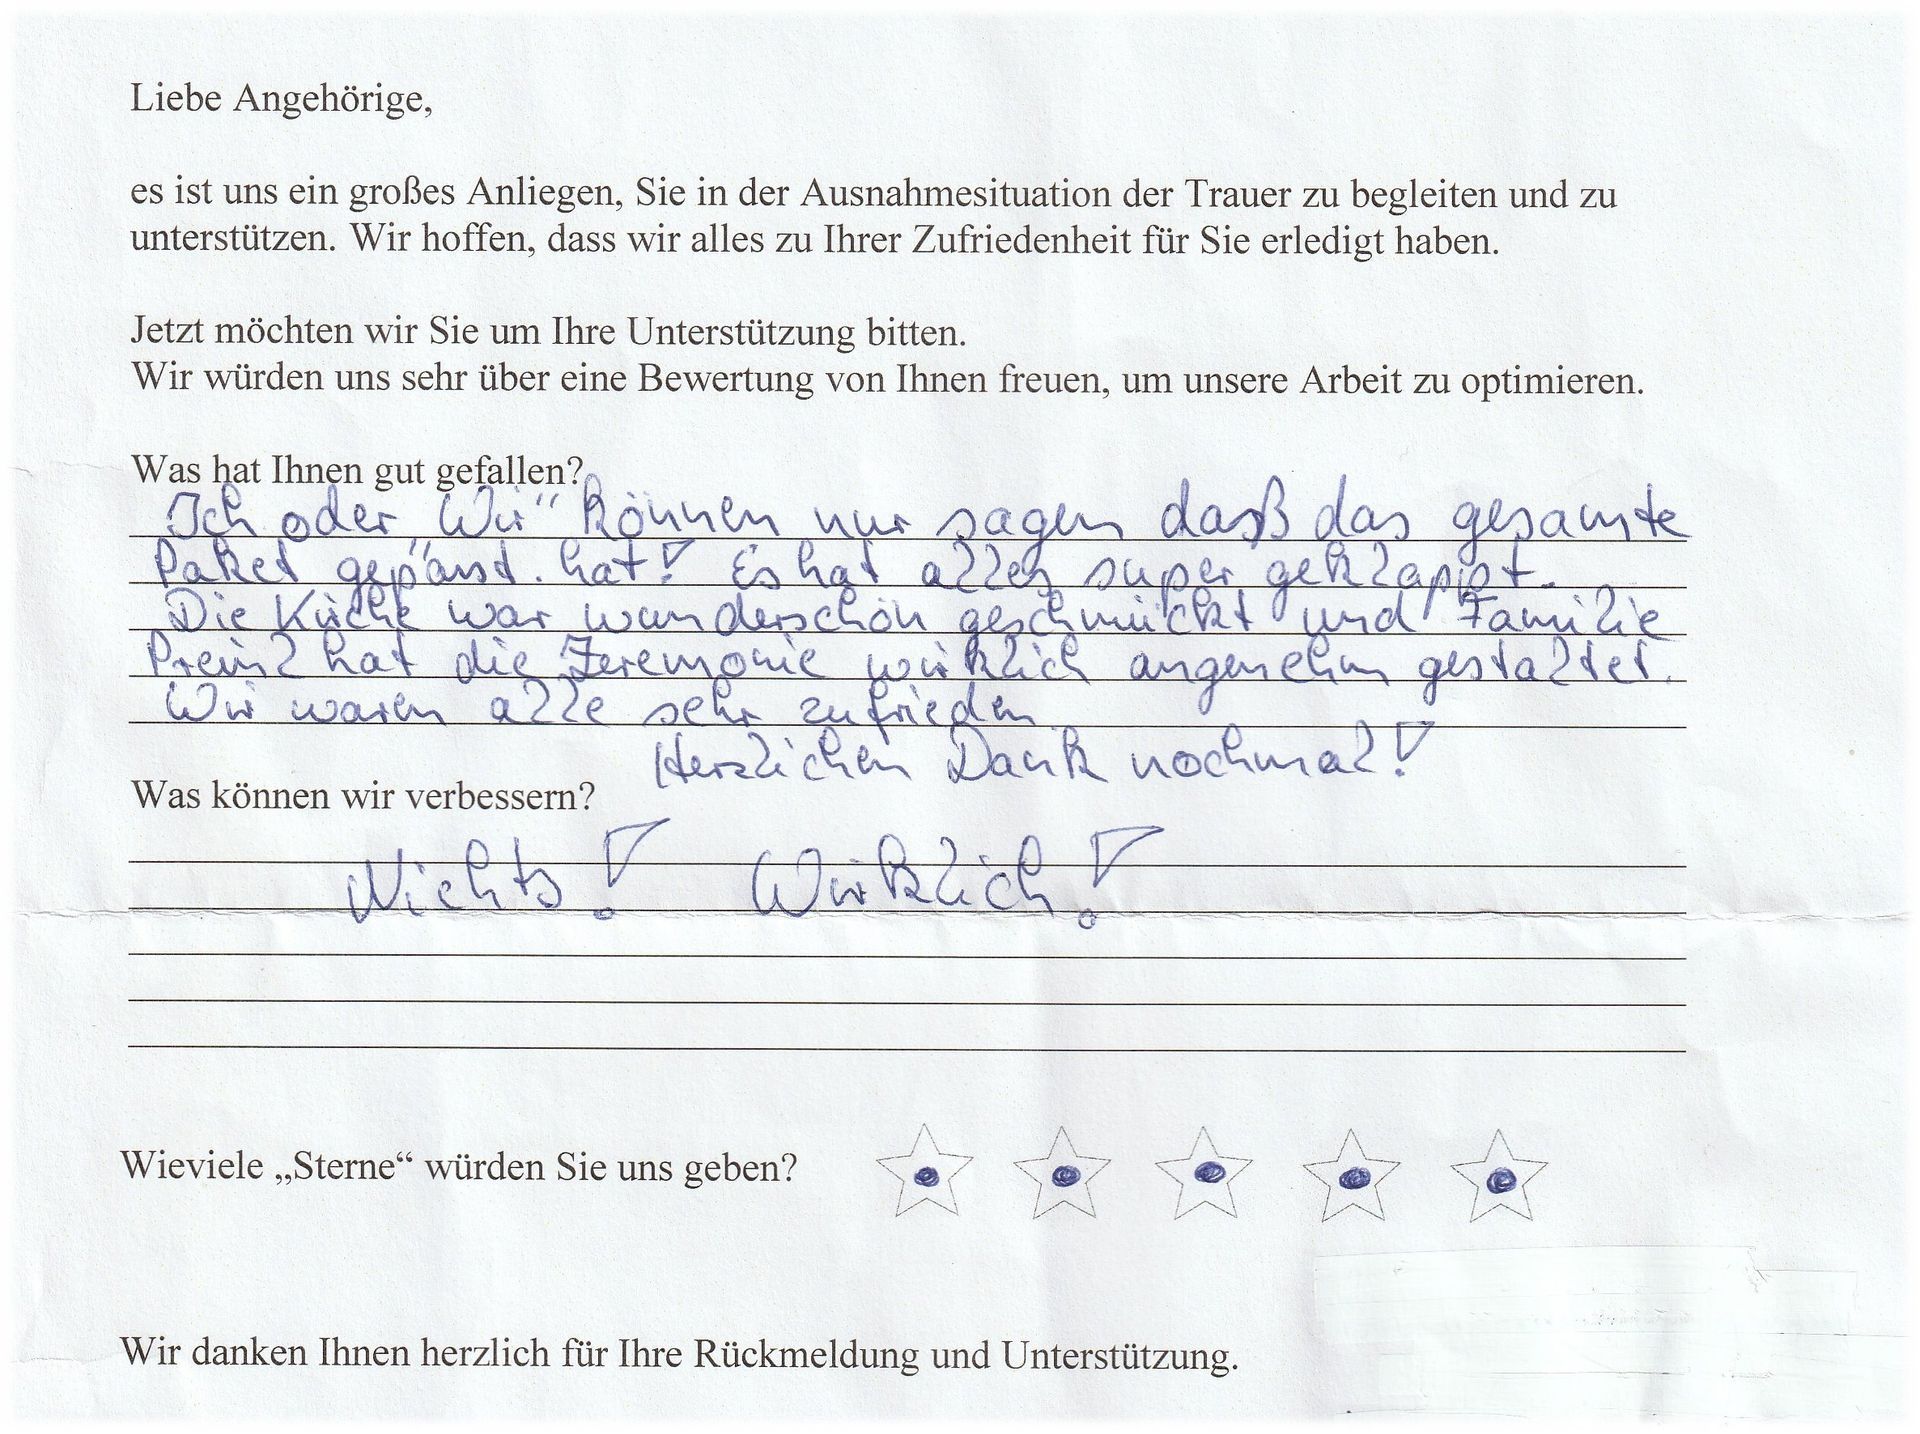 Liebe Angehörige,
es ist uns ein großes Anliegen, Sie in der Ausnahmesituation der Trauer zu begleiten und zu
unterstützen. Wir hoffen, dass wir alles zu Ihrer Zufriedenheit für Sie erledigt haben.
Jetzt möchten wir Sie um Ihre Unterstützung bitten.
Wir würden uns sehr über eine Bewertung von Ihnen freuen, um unsere Arbeit zu optimieren.
Was hat Ihnen gut gefallen?
Ich oder „Wir“ können nur sagen daß das gesamte
Paket gepasst hat! Es hat alles super geklappt.
Die Kirche war wunderschön geschmückt und Familie
hat die Zeremonie wirklich angenehm gestaltet.
Wir waren alle sehr zufrieden
Herzlichen Dank nochmal!
Was können wir verbessern?
Nichts! Wirklich!
Wieviele „Sterne“ würden Sie uns geben?
Wir danken Ihnen herzlich für Ihre Rückmeldung und Unterstützung.